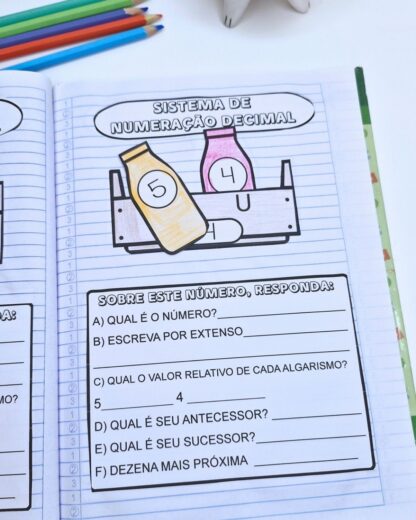 SISTEMA DE
NUMERAÇÃO DECIMAL
5
4
U
SOBRE ESTE NÚMERO, RESPONDA:
A) QUAL É O NÚMERO?
B) ESCREVA POR EXTENSO
C) QUAL O VALOR RELATIVO DE CADA ALGARISMO?
5 4
D) QUAL É SEU ANTECESSOR?
E) QUAL É SEU SUCESSOR?
F) DEZENA MAIS PRÓXIMA